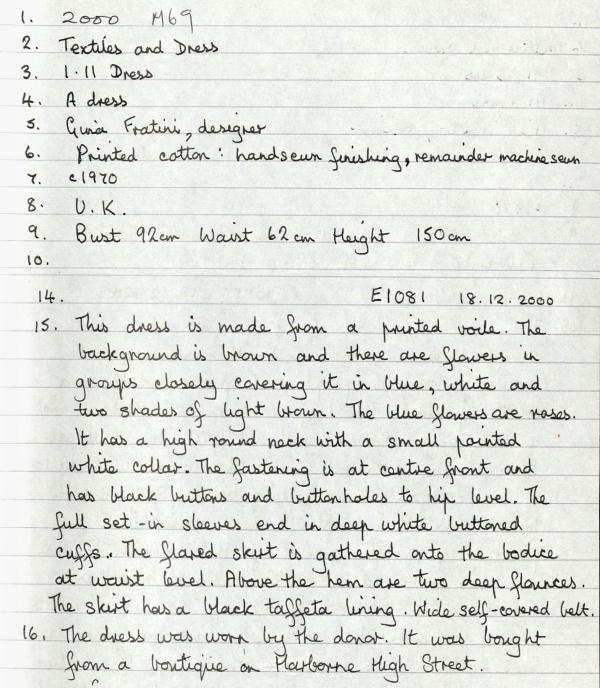 1. 2000 M69
2. Textiles and Dress
3. 1.11 Dress
4. A dress
5. Gina Fratini, designer
6. Printed cotton : handsewn finishing, remainder machine sewn
7. c1970
8. U.K.
9. Bust 92cm Waist 62cm Height 150cm
10.
14. E1081 18.12.2000
15. This dress is made from a printed voile. The
background is brown and there are flowers in
groups closely covering it in blue, white and
two shades of light brown. The blue flowers are roses.
It has a high round neck with a small pointed
white collar. The fastening is at centre front and
has black buttons and buttonholes to hip level. The
full set-in sleeves end in deep white buttoned
cuffs. The flared skirt is gathered onto the bodice
at waist level. Above the hem are two deep flounces.
The skirt has a black taffeta lining. Wide self-covered belt.
16. The dress was worn by the donor. It was bought
from a boutique on Harborne High Street.